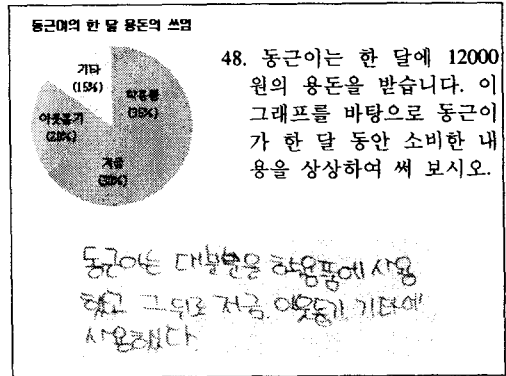 동근이의 한 달 용돈의 쓰임
기타
(15%)
학용품
(35%)
이웃돕기
(20%)
저금
(30%)
48. 동근이는 한 달에 12000
원의 용돈을 받습니다. 이
그래프를 바탕으로 동근이
가 한 달 동안 소비한 내
용을 상상하여 써 보시오.
동근이는 대부분을 학용품에 사용
했고 그 뒤로 저금, 이웃돕기, 기타에
사용했다.